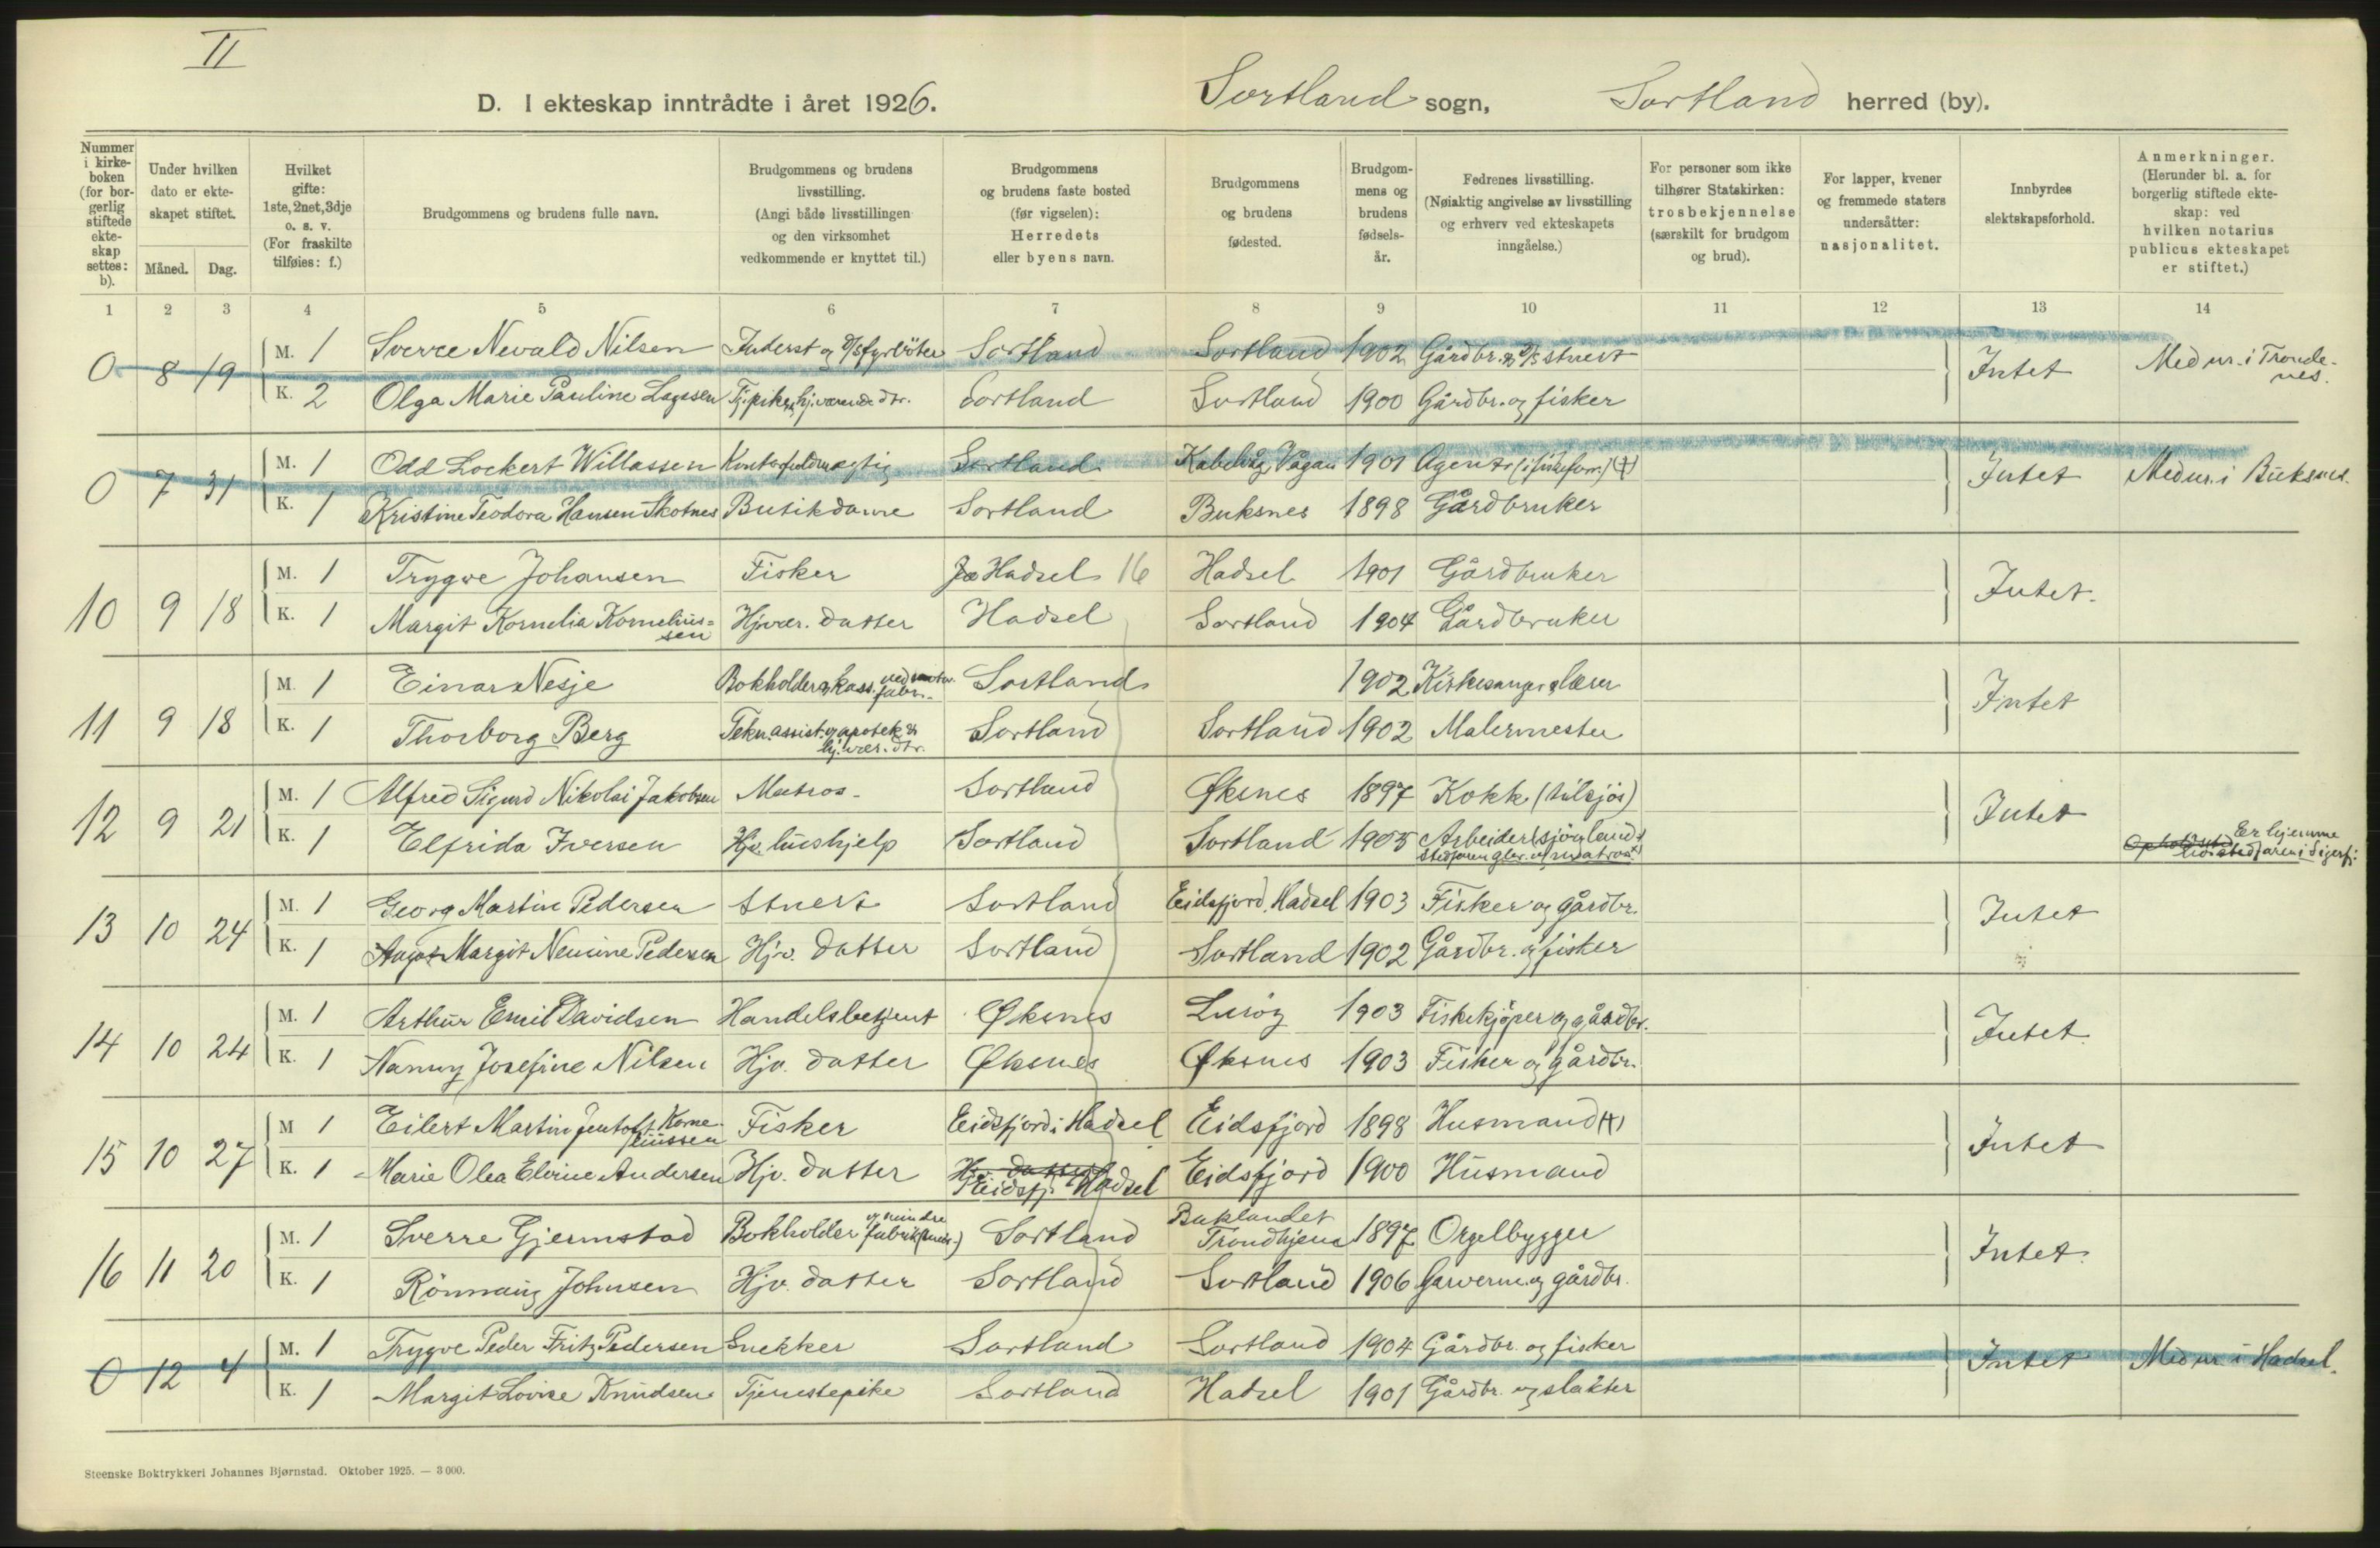 II
D. I ekteskap inntrådte i året 1926. Sortland sogn, Sortland herred (by).
Nummer i kirkeboken (for borgerlig stiftede ekteskap settes: b).
Under hvilken dato er ekteskapet stiftet.
Måned. Dag.
Hvilket gifte: 1ste, 2net, 3dje o. s. v. (For fraskilte tilføies: f.)
Brudgommens og brudens fulle navn.
Brudgommens og brudens livsstilling. (Angi både livsstillingen og den virksomhet vedkommende er knyttet til.)
Brudgommens og brudens faste bosted (før vigselen): Herredets eller byens navn.
Brudgommens og brudens fødested.
Brudgommens og brudens fødselsår.
Fedrenes livsstilling. (Nøiaktig angivelse av livsstilling og erhverv ved ekteskapets inngåelse.)
For personer som ikke tilhører Statskirken: trosbekjennelse (særskilt for brudgom og brud).
For lapper, kvener og fremmede staters undersåtter: nasjonalitet.
Innbyrdes slektskapsforhold.
Anmerkninger. (Herunder bl. a. for borgerlig stiftede ekteskap: ved hvilken notarius publicus ekteskapet er stiftet.)
1 2 3 4 5 6 7 8 9 10 11 12 13 14
0 8 19 M. 1 Sverre Nevald Nilsen Inderst og D/S fyrböter Sortland Sortland 1902 Gårdbr. og D/S stuert Intet Med nr. i Tronde-
nes.
K. 2 Olga Marie Pauline Tj.pike, hj.værende dtr. Sortland Sortland 1900 Gårdbr. og fisker
0 7 31 M. 1 Odd Lockert Willassen Kontorfuldmægtig Sortland Kabelvåg, Vågan 1901 Agent (i fiskeforr.) (+) Intet Med nr. i Buksnes.
K. 1 Kristine Teodora Hansen Skotnes Butikdame Sortland Buksnes 1898 Gårdbruker
10 9 18 M. 1 Trygve Johansen Fisker Hadsel 16 Hadsel 1901 Gårdbruker Intet.
K. 1 Margit Kornelia Kornelius=
sen Hjvær. datter Hadsel Sortland 1904 Gårdbruker
11 9 18 M. 1 Einar Nesje Bokholder og kass. ved
fabr. Sortland 1902 Kirkesanger og lærer Intet
K. 1 Thorborg Berg Tekn. assist. og apotek &
hj.vær. dtr. Sortland Sortland 1902 Malermester
12 9 21 M. 1 Alfred Sigurd Nikolai Jakobsen Matros Sortland Øksnes 1897 Kokk (tilsjøs) Intet
K. 1 Elfrida Iversen Hjv. hushjelp Sortland Sortland 1905 Arbeider (sjö og land)
Stedfaren gbr. og matros Er hjemme
hos stedfaren i Sigerfj.
13 10 24 M. 1 Georg Martin Pedersen Stuert Sortland Eidsfjord, Hadsel 1903 Fisker og gårdbr. Intet
K. 1 Margit Nensine Pedersen Hjv. datter Sortland Sortland 1902 Gårdbr. og fisker
14 10 24 M. 1 Arthur Emil Davidsen Handelsbetjent Øksnes Luröy 1903 Fiskekjöper og gårdbr. Intet.
K. 1 Nanny Josefine Nilsen Hjv. datter Øksnes Øksnes 1903 Fisker og gårdbr.
15 10 27 M 1 Eilert Martin Jentoft Korne-
liussen Fisker Eidsfjord i Hadsel Eidsfjord 1898 Husmand (+) Intet
K. 1 Marie Olea Elvine Andersen Hjv. datter Hjv. datter
Eidsfj. Hadsel Eidsfjord 1900 Husmand
16 11 20 M. 1 Sverre Gjermstad Bokholder og mindre
fabrik Sortland Baklandet
Trondhjem 1897 Orgelbygger Intet.
K. 1 Rönnaug Johnsen Hjv. datter Sortland Sortland 1906 Garverm. og gårdbr.
0 12 4 M. 1 Trygve Peder Fritz Pedersen Snekker Sortland Sortland 1904 Gårdbr. og fisker Intet Med nr. i Hadsel.
K. 1 Margit Lovise Knudsen Tjenestepike Sortland Hadsel 1901 Gårdbr. og slakter
Steenske Boktrykkeri Johannes Bjørnstad. Oktober 1925. — 3 000.